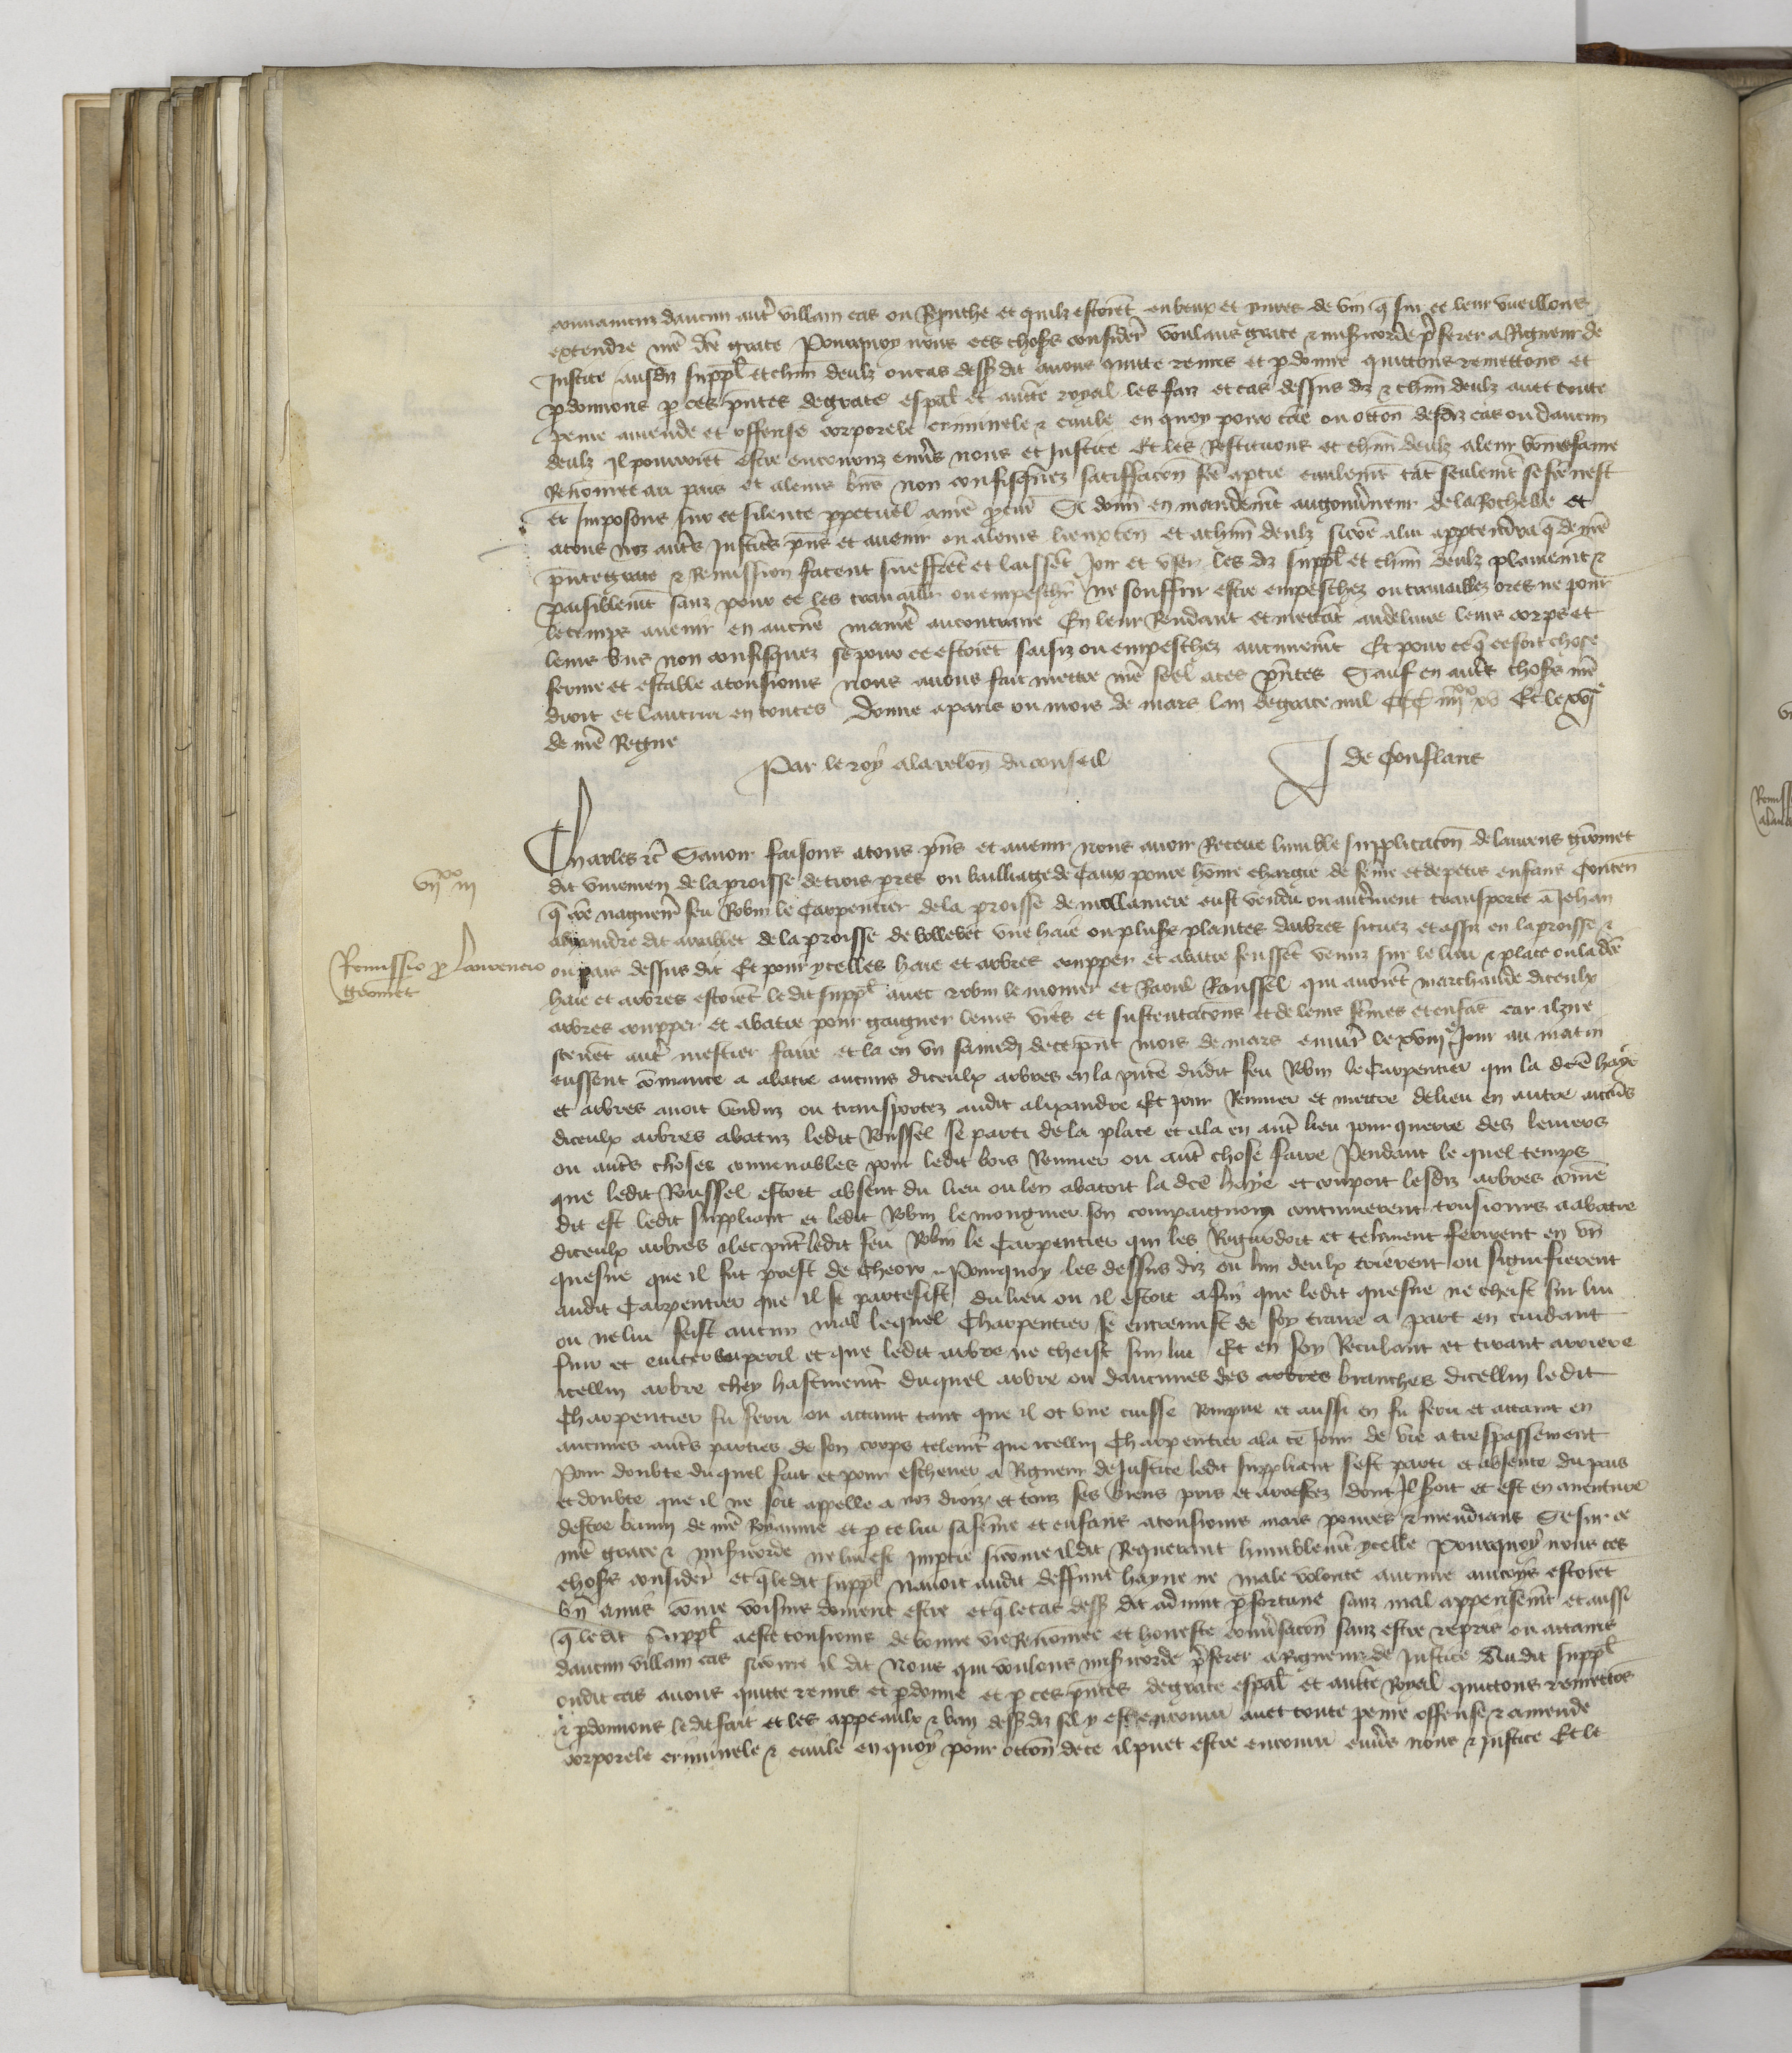 convaincuz daucun autre villain cas ou reprouche et quilz estoient enbeuz et yures de vin q̃ sur ce leur vueillons
extendre nr̃e dc̃e grace Pourquoy nous ces choses consider̃ voulans grace & miscorde p̃ferer a Rigueur de
Justice ausdiz suppl̃ et chm̃ deulz ou cas dess dit auons quitte remis et pdonne quittons remettons et
pdonnons p ces pñtes de grace esp̃al et aucte royal les faiz et cas dessus diz & chm̃ deulz auec toute
peine amende et offense corporele criminele & ciuile en quoy pour cãe ou occõn desdiz cas ou daucun
deulz Il pourroiẽt estre encouruz enũs nous et Justice Et les Restituons et chm̃ deulz a leur bonne fame
Renõmee au pais et a leurs biẽs non confisq̃uez satiffaccõn fc̃e a ptie ciuilemẽt tãt seulemẽt se fc̃e nest
Et Imposons sur ce silence ppetuel a nr̃e pcur̃ Si donñ en mandemẽt au gouũneur de la Rochelle et
a touz noz autr̃s Justic̃s pñs et auenir ou a leurs lieuxteñ et a chm̃ deulz sicõe a lui apptendra q̃ de nr̃e
pñte grace & Remission facent sueffrẽt et laissẽt Joir et vser les diz suppl̃ et chm̃ deulz plainemẽt &
paisiblemẽt sanz pour ce les trauaillr̃ ou empeschr̃ ne souffrir estre empeschez ou trauaillez ores ne pour
le temps auenir en aucũe manie͂ au contraire En leur Rendant et mettãt au deliure leurs corps et
leurs biẽs non confisquez se pour ce estoiẽt saisiz ou empeschez aucunemẽt Et pour ce q̃ ce soit chose
ferme et estable a tousiours nous auons fait mettre nr̃e seel a ces pñtes Sauf en autr̃s choses nr̃e
droit et lautrui en toutes Donne a paris ou mois de mars lan de grace mil CCC iiiiˣˣ xv Et le xviᵉ
de nr̃e Regne
Par le roy a la relon̄ du conseil J de Conflans
Charles &c̃ Sauoir faisons a touz pñs et auenir nous auoir Receue lumble supplicacõn de laurens grõmet
dit vinemen de la proisse de trois pres ou bailliage de Caux poure hõme chargie de fẽme et de petis enfans Conten
viiˣˣ iii
q̃ cõe naguer̃ feu Robin le Carpentier de la proisse de mallamere eust vendu ou autr̃ment transporte a Jehan
alixandre dit aruillet de la proisse de bolleuẽt vne haie ou pluss plantes darbres situez et assiz en la proisse &
Remissio p Laurencio
grõmet
ou pais dessus dit Et pour ycelles haie et arbres coupper et abatre feussẽt venuz sur le lieu & place ou la dc̃e
haie et arbres estoiẽt le dit suppl̃ auec robin le monier et Raoul Roussel qui auoiẽt marchande diceulx
arbres coupper et abatre pour gaigner leurs viẽs et sustentacõns et de leurs fẽmes et enfãs car ilz ne
sceuẽt autr̃ mestier faire et la en vn samedi de ce pñt mois de mars enuir̃ le xviiiᵉ Jour au matin
eussent cõmance a abatre aucuns diceulx arbres en la pñce dudit feu Rbin le Carpentier qui la dcẽ haye
et arbres auoit venduz ou transportez audit alixandre Et pour Remuer et mettre de lieu en autre aucũs
diceulx arbres abatuz ledit Roussel se parti de la place et ala en autr̃ lieu pour querre des leuiers
ou autr̃s choses conuenables pour ledit bois Remuer ou autr̃ chose faire Pendant le quel temps
que ledit Roussel estoit absent du lieu ou len abatoit la dcẽ haye et coupoit lesdiz arbres cõme
dit est ledit suppliant et ledit Robin le mongnier son compaignon continuerent tousiours a abatre
diceulx arbres ilec pñt ledit feu Robin le Carpentier qui les Regardoit et telement ferirent en vñ
quesne que il fut prest de cheoir Pourquoy les dessus diz ou lun deulx crierent ou signifierent
audit Carpentier que il se partesist du lieu ou il estoit afin que ledit quesne ne cheist sur lui
ou ne lui feist aucun mal lequel Charpentier se entremist de soy traire a part en cuidant
fuir et euiter le peril et que ledit arbre ne cheist sur lui Et en soy Reculant et tirant arriere
icellui arbre chey hastiuemẽt duquel arbre ou daucunes des arbres branches dicellui ledit
Charpentier fu feru ou attaint tant que il ot vne cuisse rompue et aussi en fu feru et attaint en
aucunes autr̃s parties de son corps telemẽt que icellui Charpentier ala ce Jour de vie a trespassement
Pour doubte du quel fait et pour escheuer a Rigueur de Justice ledit suppliant sest parti et absente du pais
et doubte que il ne soit appelle a noz droiz et touz ses biens pris et arrestez dont Il soit et est en auenture
destre bannj de nr̃e Royaume et p ce lui sa fẽme et enfans a tousiours mais poures & mendians Se sur ce
nr̃e grace & miscorde ne lui est Imptie sicõme il dit Requerant humblemẽt ycelle Pourquoy nous ces
choses consider̃ et q̃ ledit suppl̃ nauoit audit deffunt hayne ne male volonte aucune aincoys estoiẽt
bñ amis cõme voisins doiuent estre et q̃ le cas dess dit aduint p fortune sanz mal appensemẽt et aussi
q̃ le dit suppl̃ a este tousiours de bonne vie Renõmee et honeste conũsacõn sanz estre repris ou attaint
daucun villain cas sicõme il dit Nous qui voulons miscorde p̃ferer a Rigueur de Justice Audit suppl̃
oudit cas auons quitte remis et pdonne et p ces pñtes de grace esp̃al et aucte Royal quittons remettõs
& pdonnons ledit fait et les appeaulx & ban dess diz sil y est encouru auec toute peine offense & amende
corporele criminele & ciuile en quoy pour occõn de ce il puet estre encouru enũs nous & Justice Et le